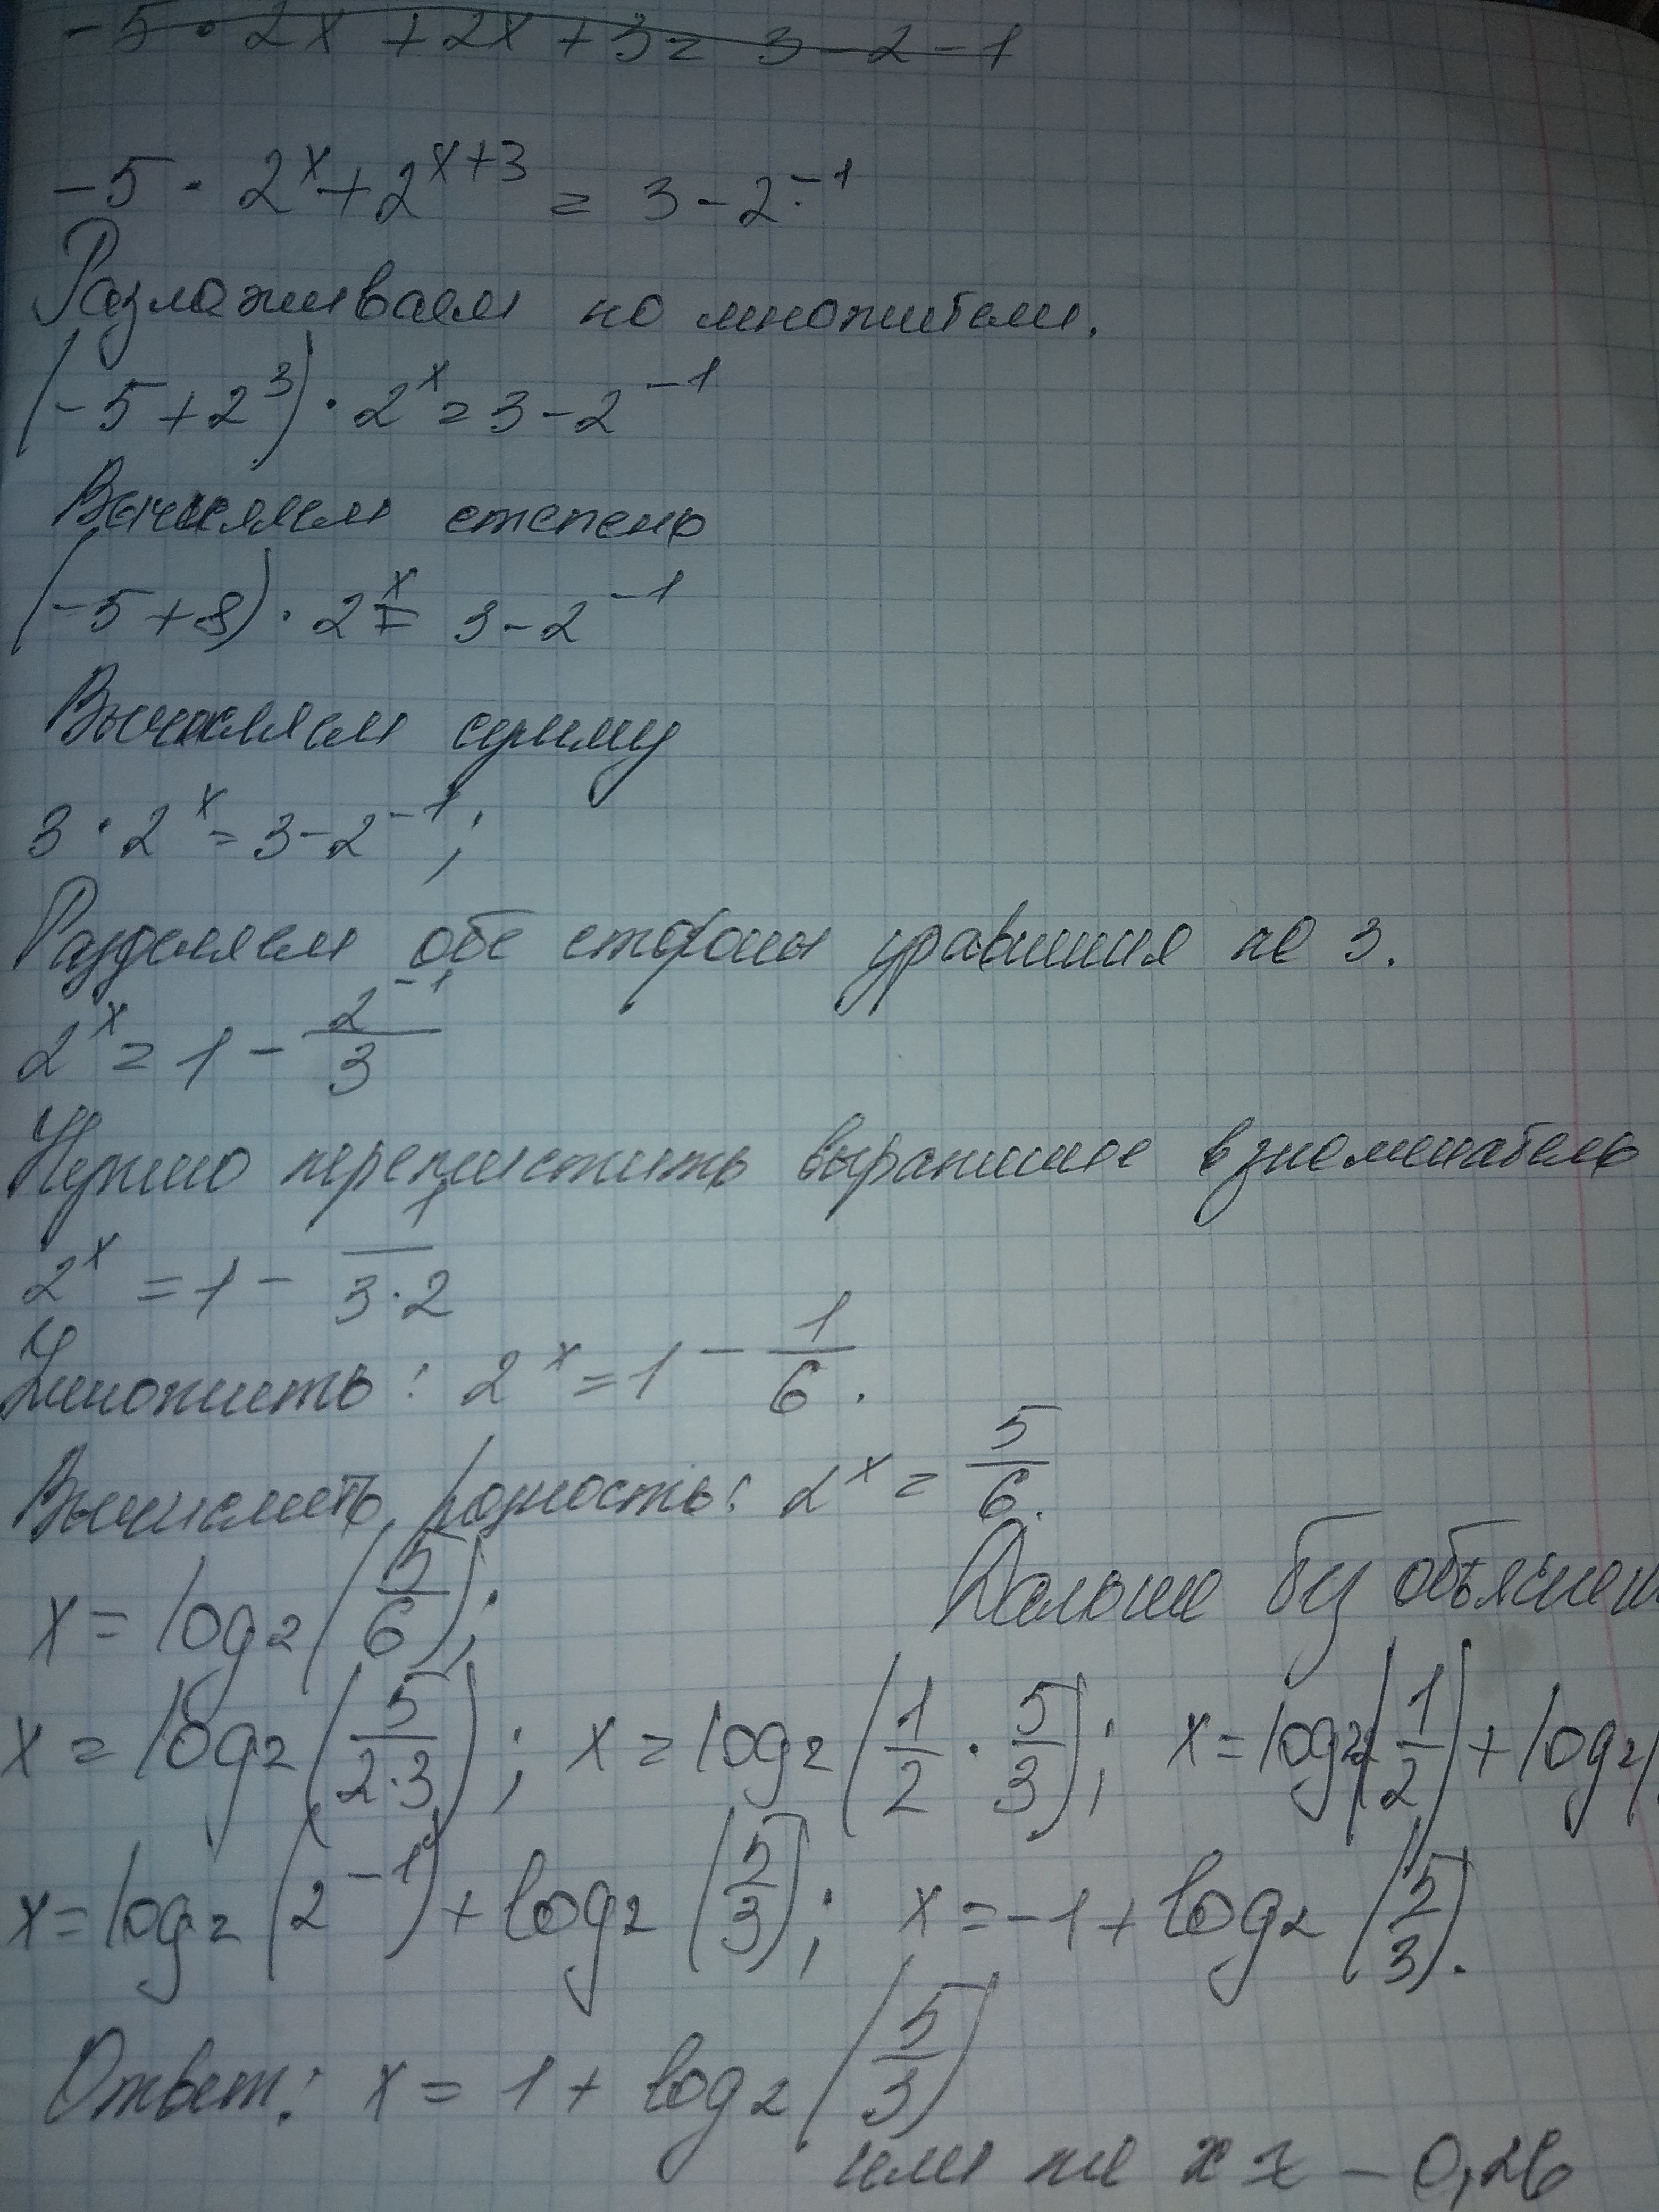 -5 · 2x + 2x + 3 = 3 - 2 - 1
-5 · 2^x + 2^{x+3} = 3 - 2^{-1}
Разлаживаем на множители.
(-5 + 2^3) · 2^x = 3 - 2^{-1}
Вычисляем степень
(-5 + 8) · 2^x = 3 - 2^{-1}
Вычисляем сумму
3 · 2^x = 3 - 2^{-1};
Разделяем обе стороны уравниния на 3.
2^x = 1 - \frac{2^{-1}}{3}
Нужно переместить выражение в знаменатель
2^x = 1 - \frac{1}{3·2}
Умножить: 2^x = 1 - \frac{1}{6}.
Вычислить разность: 2^x = \frac{5}{6}.
x = log_2(\frac{5}{6}); Дальше бу объяснени
x = log_2(\frac{5}{2·3}); x = log_2(\frac{1}{2} · \frac{5}{3}); x = log_2(\frac{1}{2}) + log_2(
x = log_2(2^{-1}) + log_2(\frac{5}{3}); x = -1 + log_2(\frac{5}{3}).
Ответ: x = 1 + log_2(\frac{5}{3})
или же x ≈ -0,26